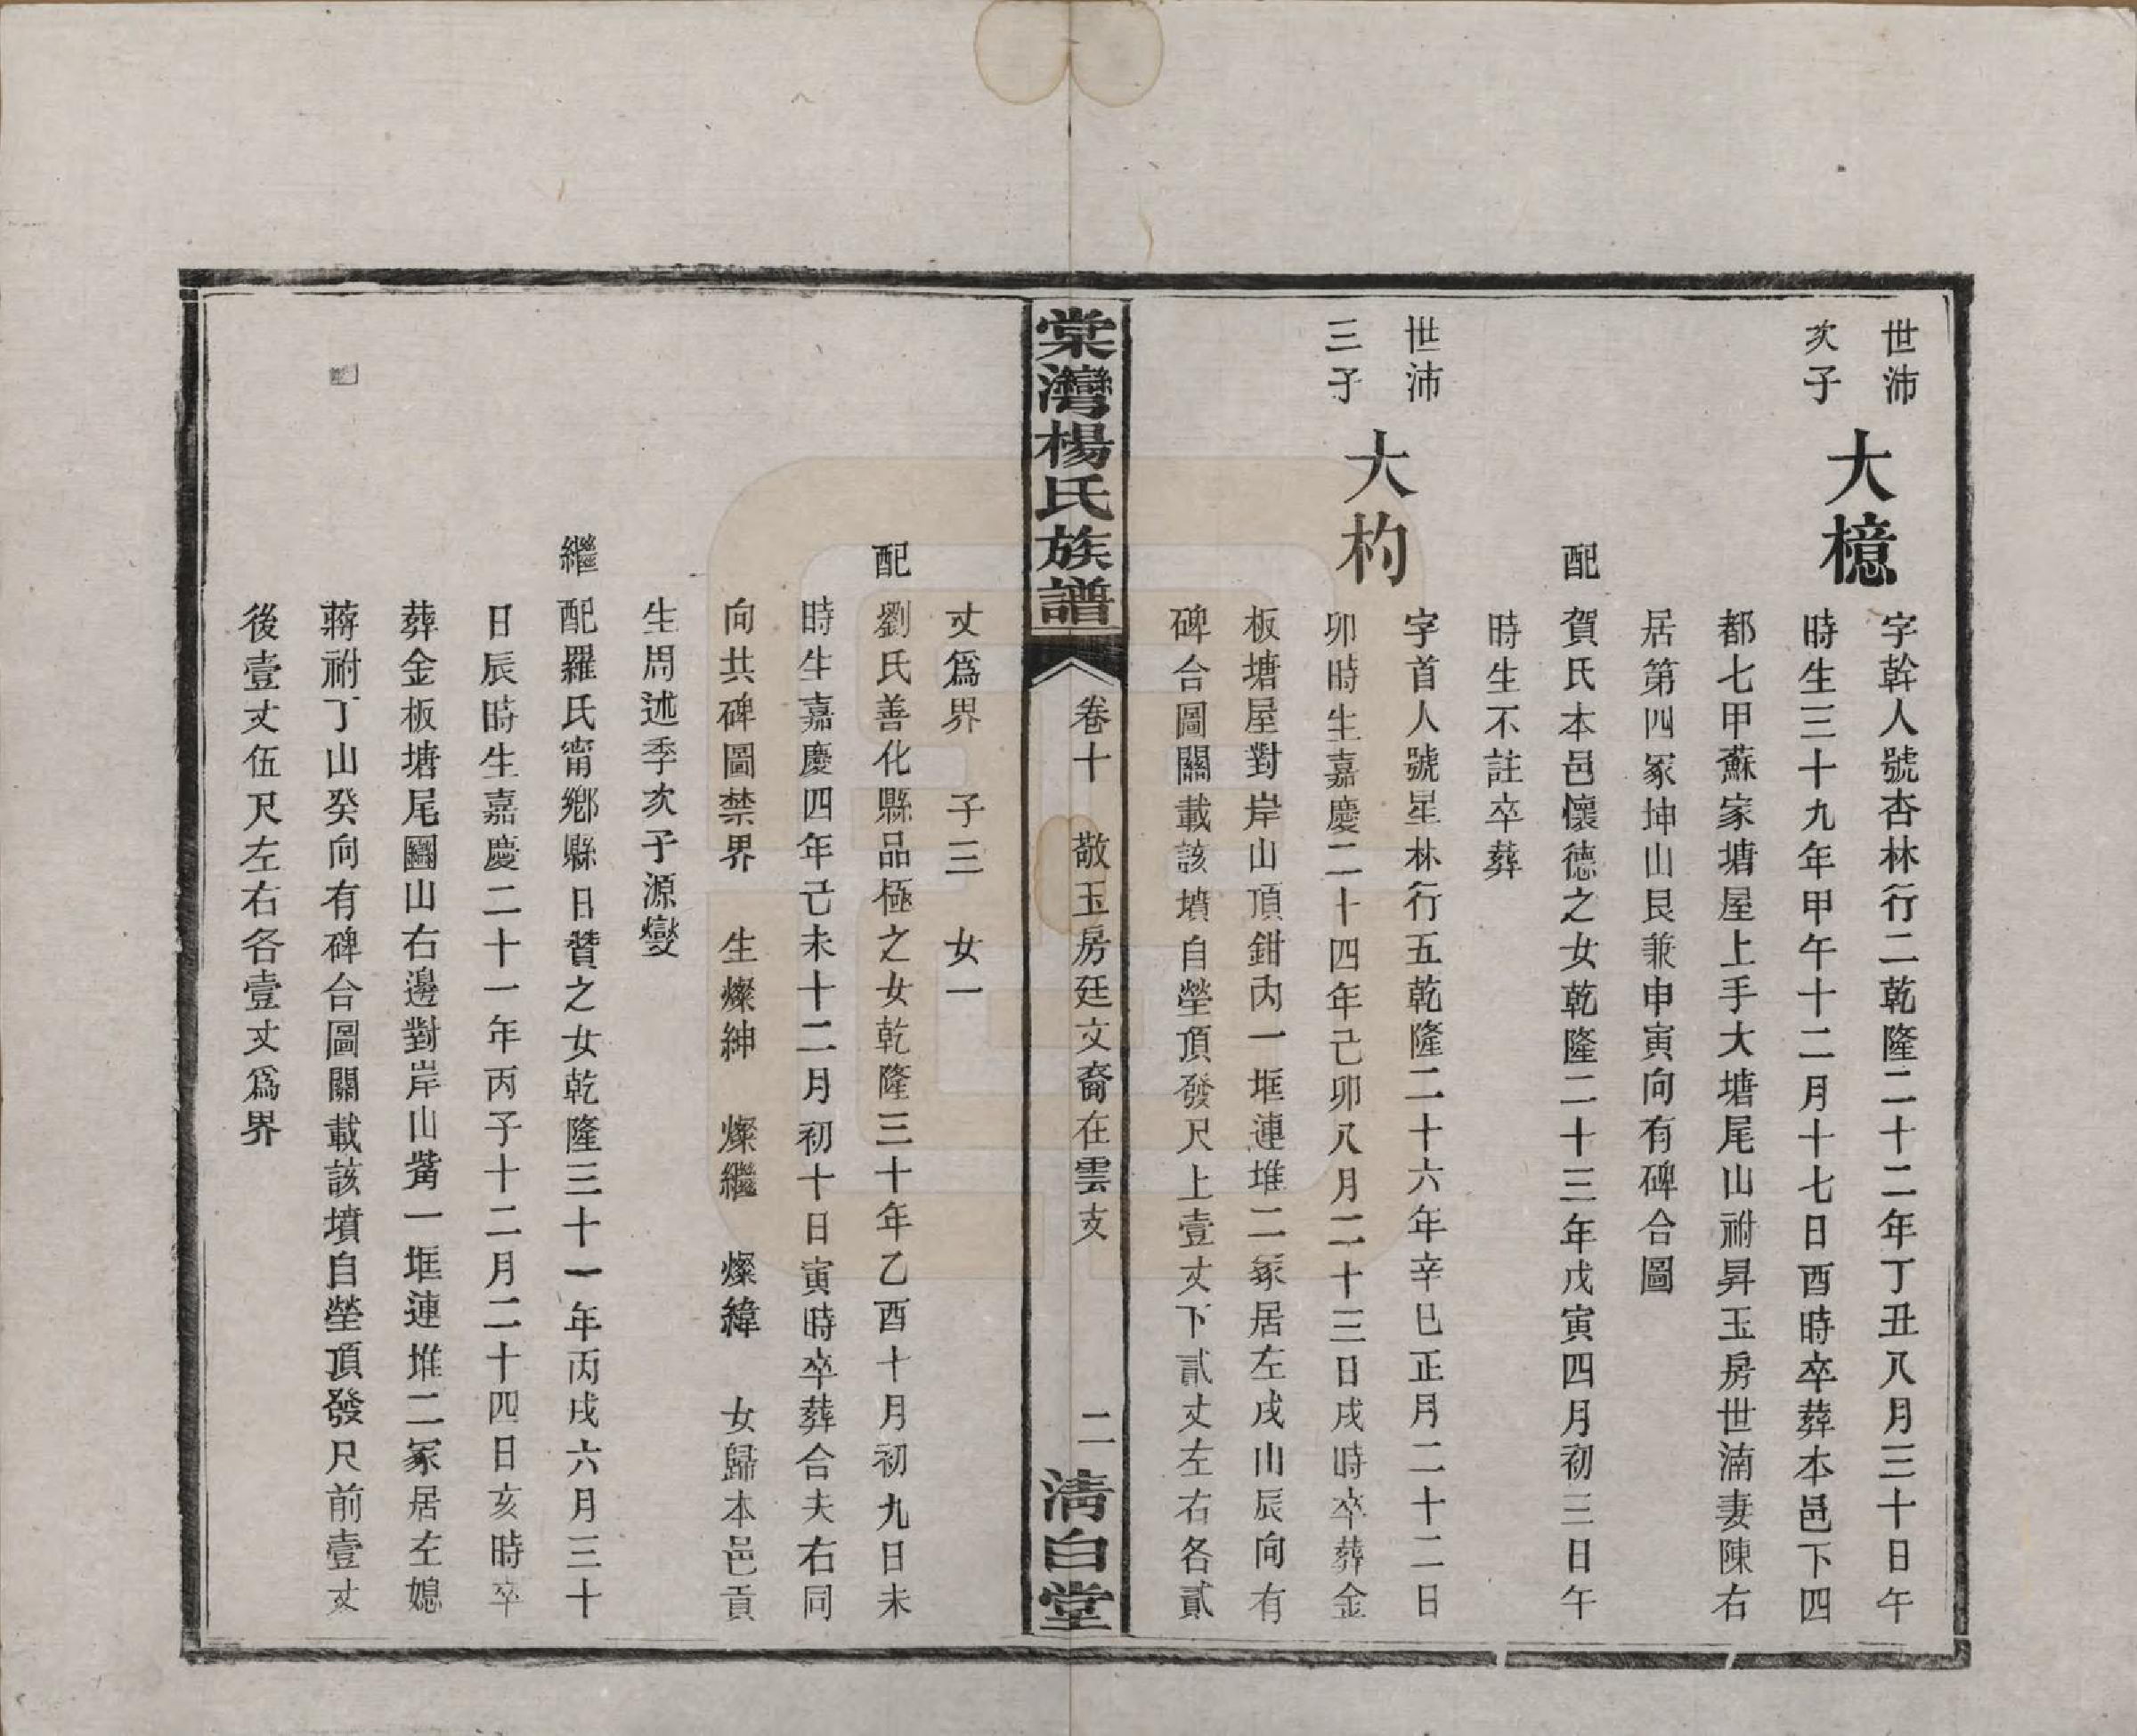 世沛
次子
大檍
字幹人號杏林行二乾隆二十二年丁丑八月三十日午
時生三十九年甲午十二月十七日酉時卒葬本邑下四
都七甲蘇家塘屋上手大塘尾山祔昇玉房世湳妻陳右
居第四冢坤山艮兼申寅向有碑合圖
配賀氏本邑懷德之女乾隆二十三年戊寅四月初三日午
時生不註卒葬
世沛
三子
大杓
字首人號星林行五乾隆二十六年辛巳正月二十二日
卯時生嘉慶二十四年己卯八月二十三日戌時卒葬金
板塘屋對岸山頂鉗內一堆連堆二冢居左戌山辰向有
碑合圖關載該墳自塋頂發尺上壹丈下貳丈左右各貳
棠灣楊氏族譜
卷十 敬玉房廷文裔在雲支
二 清白堂
丈爲界 子三 女一
配劉氏善化縣品極之女乾隆三十年乙酉十月初九日未
時生嘉慶四年己未十二月初十日寅時卒葬合夫右同
向共碑圖禁界 生燦紳 燦繼 燦緯 女歸本邑貢
生周述季次子源燮
繼配羅氏甯鄉縣日贊之女乾隆三十一年丙戌六月三十
日辰時生嘉慶二十一年丙子十二月二十四日亥時卒
葬金板塘尾圝山右邊對岸山觜一堆連堆二冢居左媳
蔣祔丁山癸向有碑合圖關載該墳自塋頂發尺前壹丈
後壹丈伍尺左右各壹丈爲界